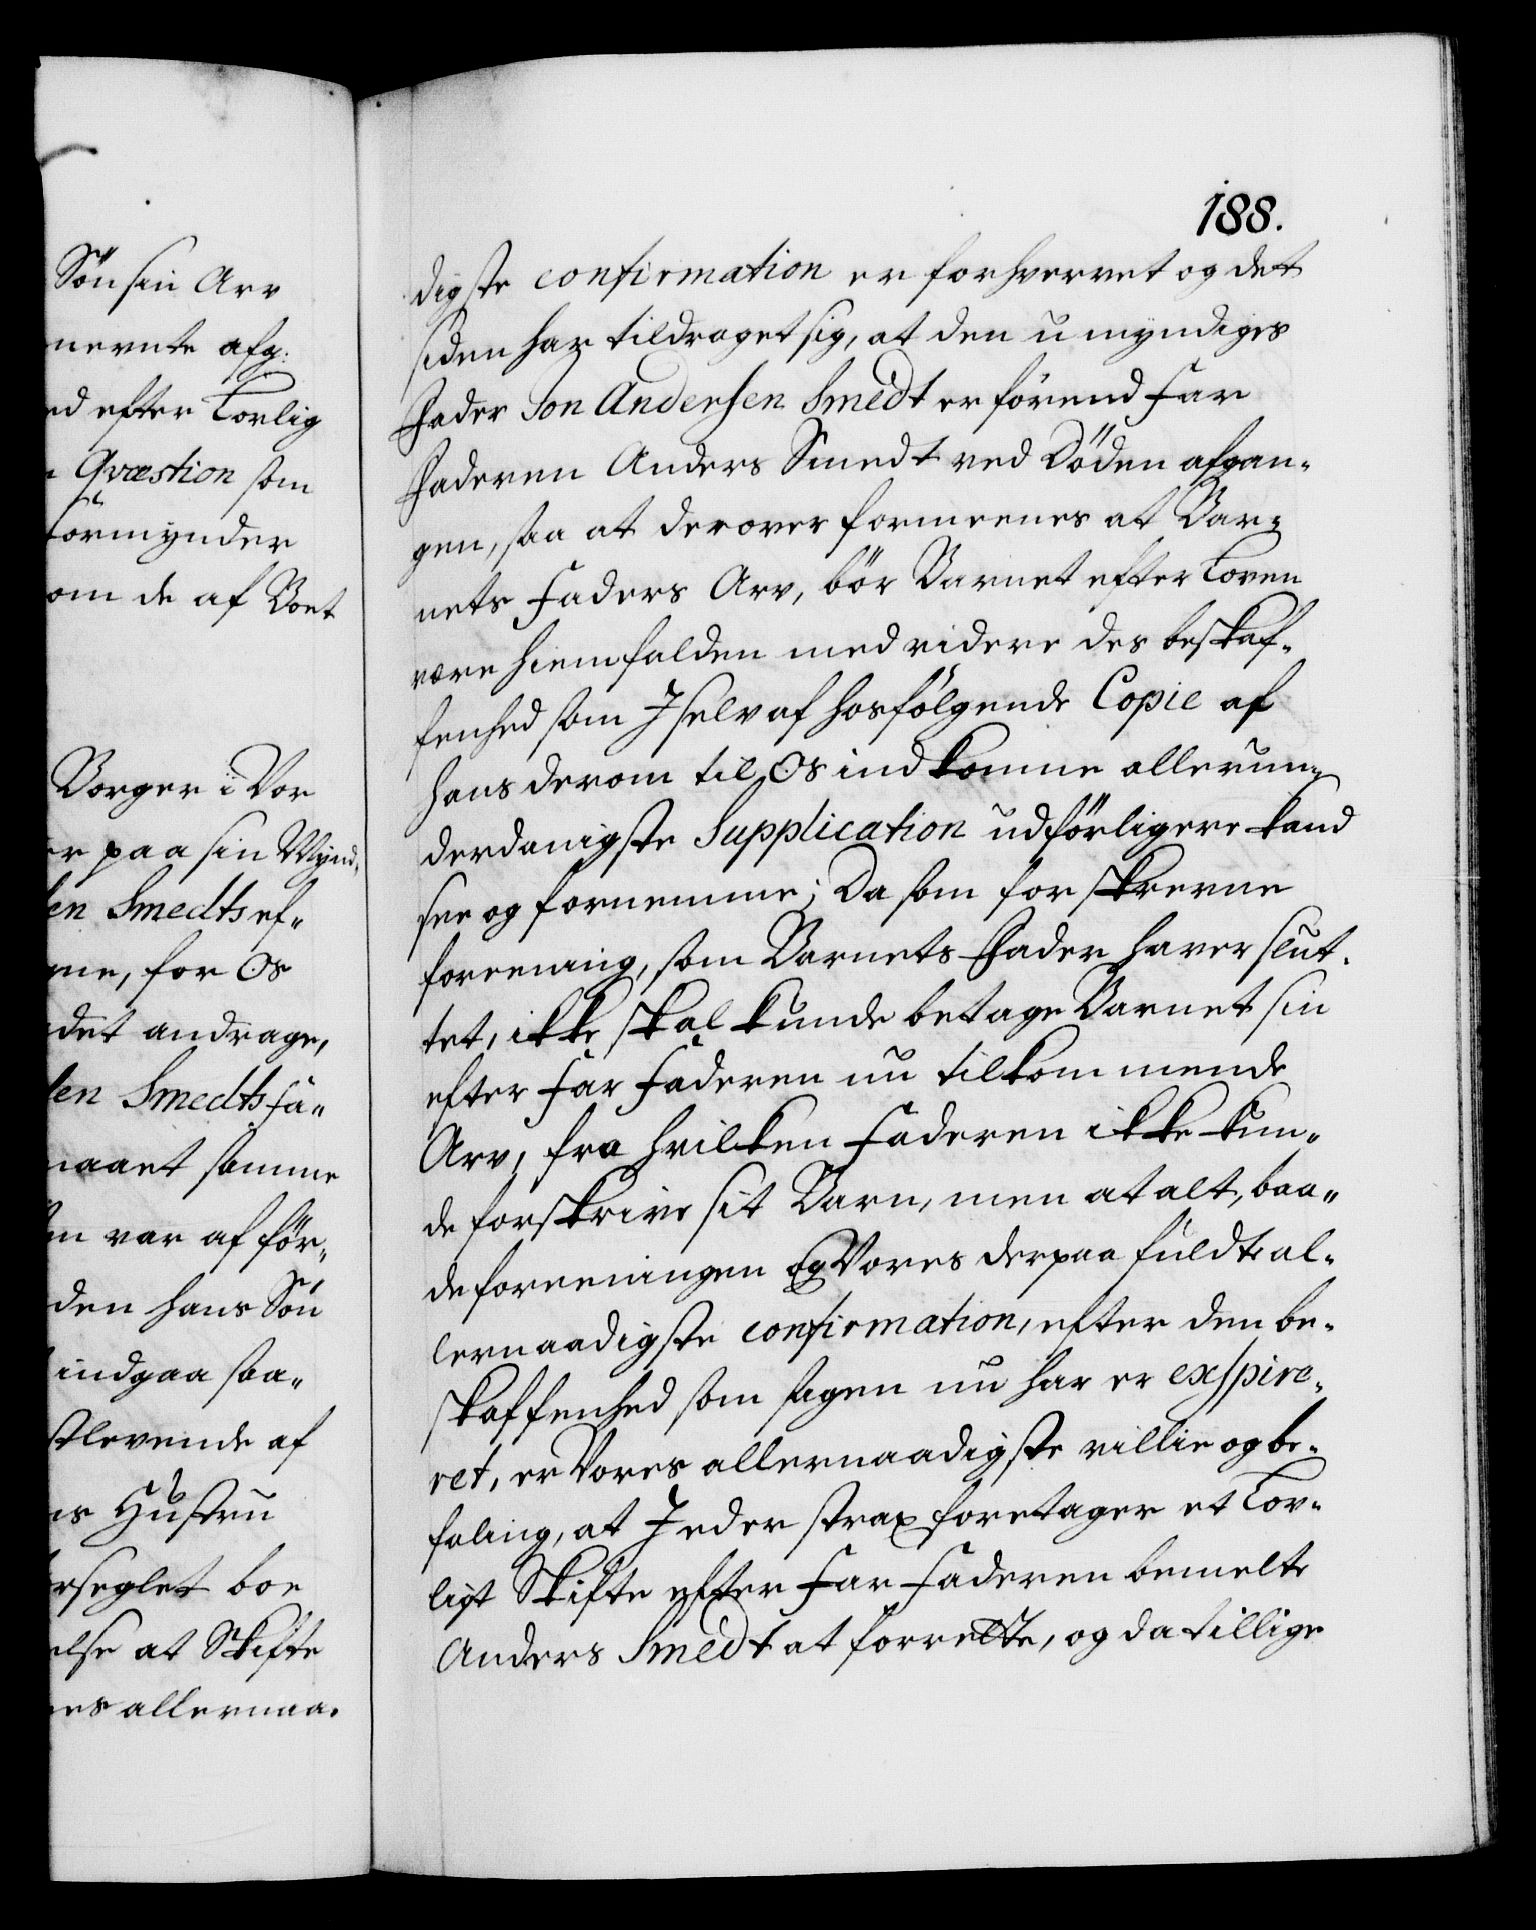 188.
digste confirmation er forhvervet og det
siden har tildraget sig, at den umyndiges
Fader Jon Andersen Smedt er förend Far
Faderen Anders Smedt ved Döden afgan-
gen, saa at derover formeenes at Bar-
nets Faders Arv, bör Barnet efter Loven
være hiemfalden med videre des beskaf-
fenhed som I self af hosfölgende Copie af
hans derom til Os indkomne allerun-
derdanigste Supplication udförligere kand
see og fornemme; Da som forskrevne
foreening, som Barnets Fader haver slut-
tet, ikke skal kunde betage Barnet sin
efter Far Faderen nu tilkommende
Arv, fra hvilken Faderen ikke kun-
de forskrive sit Barn, men at alt, baa-
de foreeningen og Vores derpaa fuldte al-
lernaadigste confirmation, efter den be-
skaffenhed som sagen nu har er exspire-
ret, er Vores allernaadigste villie og be-
faling, at I eder strax foretager et Lov-
ligt Skifte efter Far Faderen bemelte
Anders Smedt at forrette, og da tillige
Sön sin Arv
nevnte afg:
ed efter Lovlig
Qvæstion som
formynder
om de af Boet
Borger i Vor
er paa sin Mynd-
en Smedts ef-
gne, for Os
det andrage,
en Smedts Fa-
naaet samme
m var af för-
den hans Sön
indgaa saa-
stlevende af
ns Hustru
rseglet boe
else at Skifte
res allernaa-